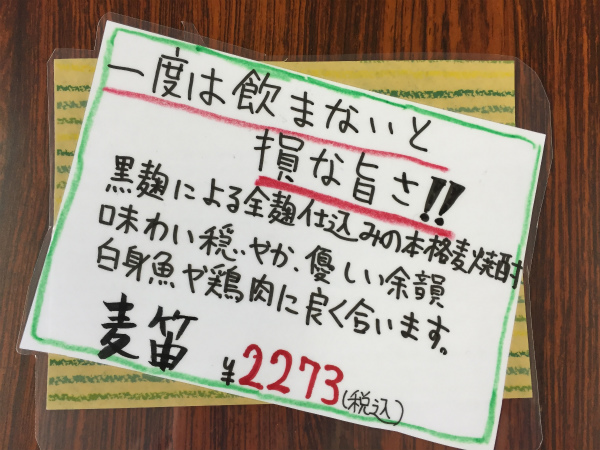 一度は飲まないと
損な旨さ!!
黒麹による全麹仕込みの本格麦焼酎
味わい穏やか、優しい余韻
白身魚や鶏肉に良く合います。
麦笛 ¥2273(税込)